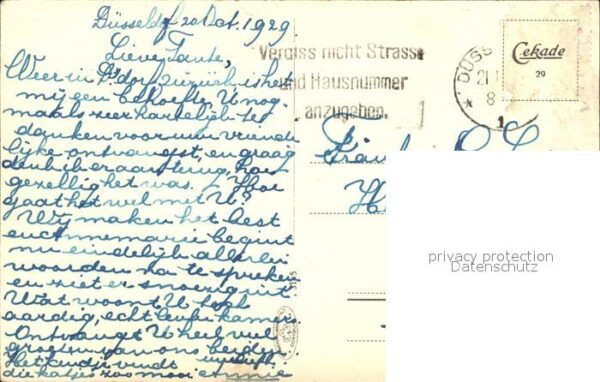 Düsseldf 20 Oct. 1929
Lieve Tante,
Weer in D'dorf terug is het
mij een behoefte U nog
maals zeer hartelijk te
danken voor uw vriende
lijke ontvangst, en graag
denk ik eraan terug, hoe
gezellig het was. Hoe
gaat het wel met U?
Wij maken het best
en begint
nu eindelijk allerlei
woorden na te spreken
en ziet er snoezig uit.
Wat woont U toch
aardig, echt leuke kamer
Ontvangt U heel veel
groeten van ons beiden
Het kindje vindt
die katjes zoo mooi
Vergiss nicht Strasse
und Hausnummer
anzugeben.
DÜSS
21
8
* 1
Cekade
29
privacy protection
Datenschutz